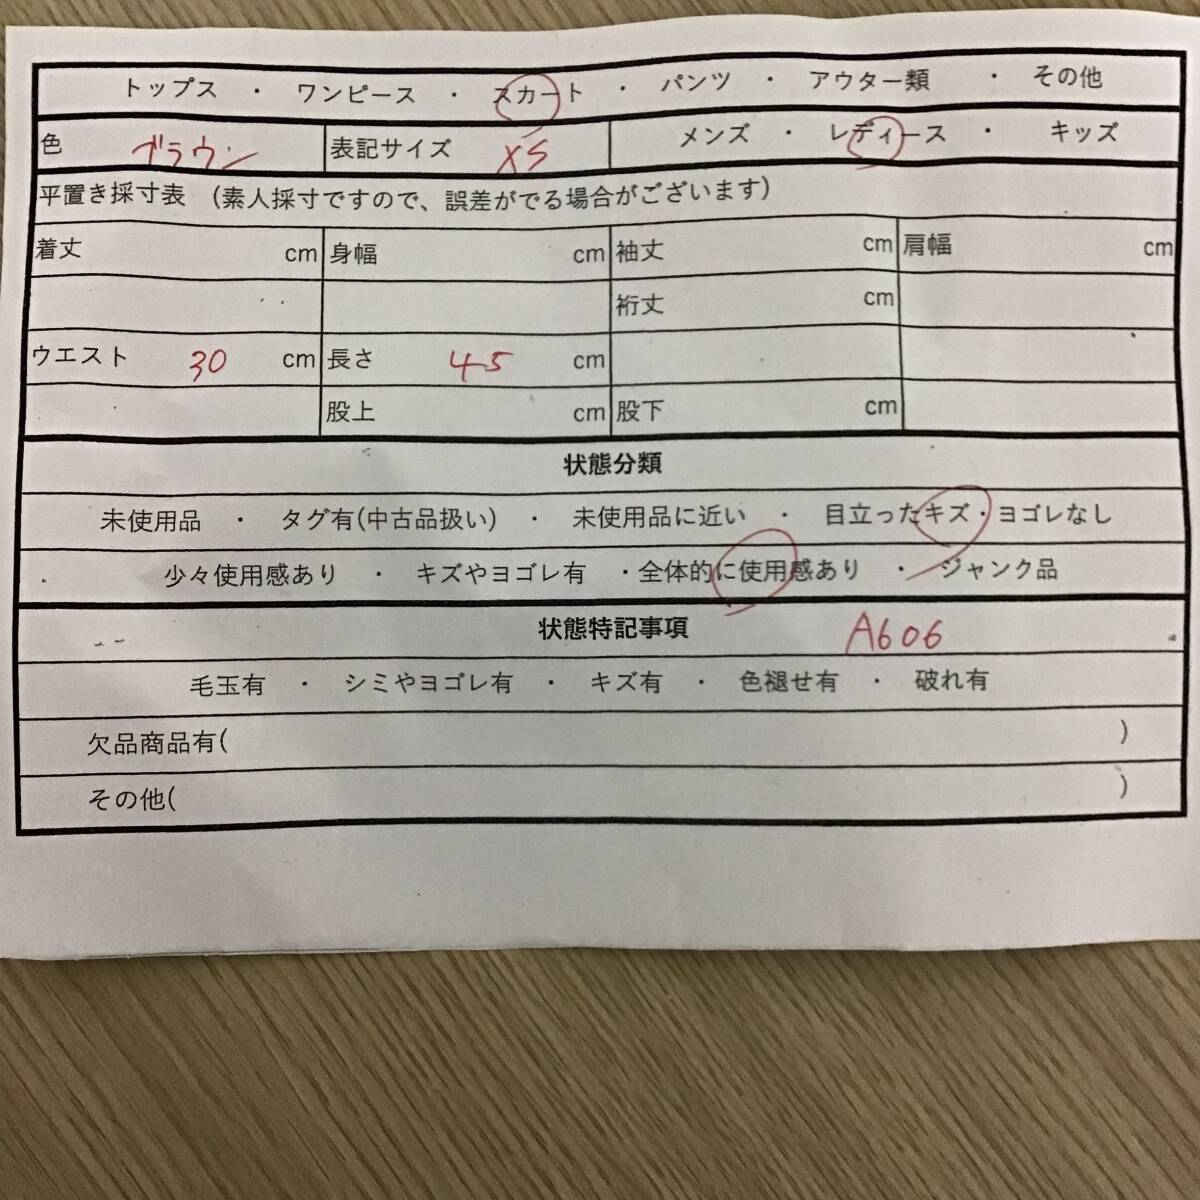 トップス ・ ワンピース ・ スカート ・ パンツ ・ アウター類 ・ その他
色 ブラウン 表記サイズ XS メンズ ・ レディース ・ キッズ
平置き採寸表 (素人採寸ですので、誤差がでる場合がございます)
着丈 cm 身幅 cm 袖丈 cm 肩幅 cm
裄丈 cm
ウエスト 30 cm 長さ 45 cm
股上 cm 股下 cm
状態分類
未使用品 ・ タグ有(中古品扱い) ・ 未使用品に近い ・ 目立ったキズ・ヨゴレなし
少々使用感あり ・ キズやヨゴレ有 ・全体的に使用感あり ・ ジャンク品
状態特記事項 A606
毛玉有 ・ シミやヨゴレ有 ・ キズ有 ・ 色褪せ有 ・ 破れ有
欠品商品有( )
その他( )